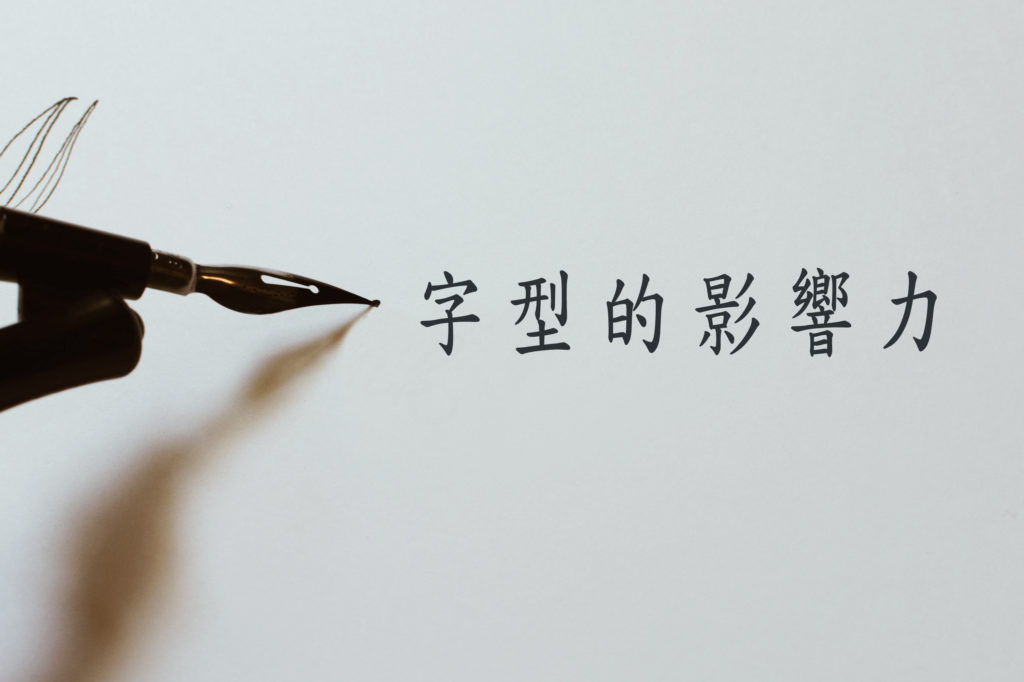 字型的影響力